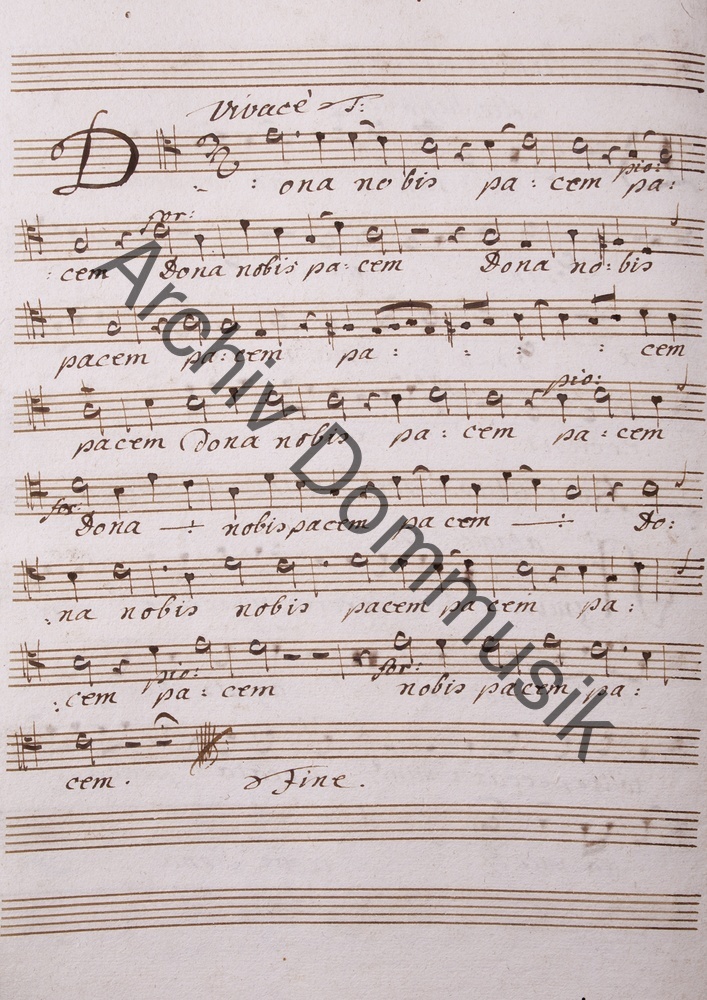 Vivacè T:
D : ona nobis pa : cem pa :
pio:
for:
: cem Dona nobis pa : cem Dona no : bis
pacem pa : cem pa : : : : cem
pio:
pacem Dona nobis pa : cem pa : cem
for:
Dona —÷ nobis pacem pa cem —÷ Do :
: na nobis nobis pacem pa cem pa :
pio: for:
: cem pa : cem nobis pacem pa :
cem . Fine .
Archiv Dommusik